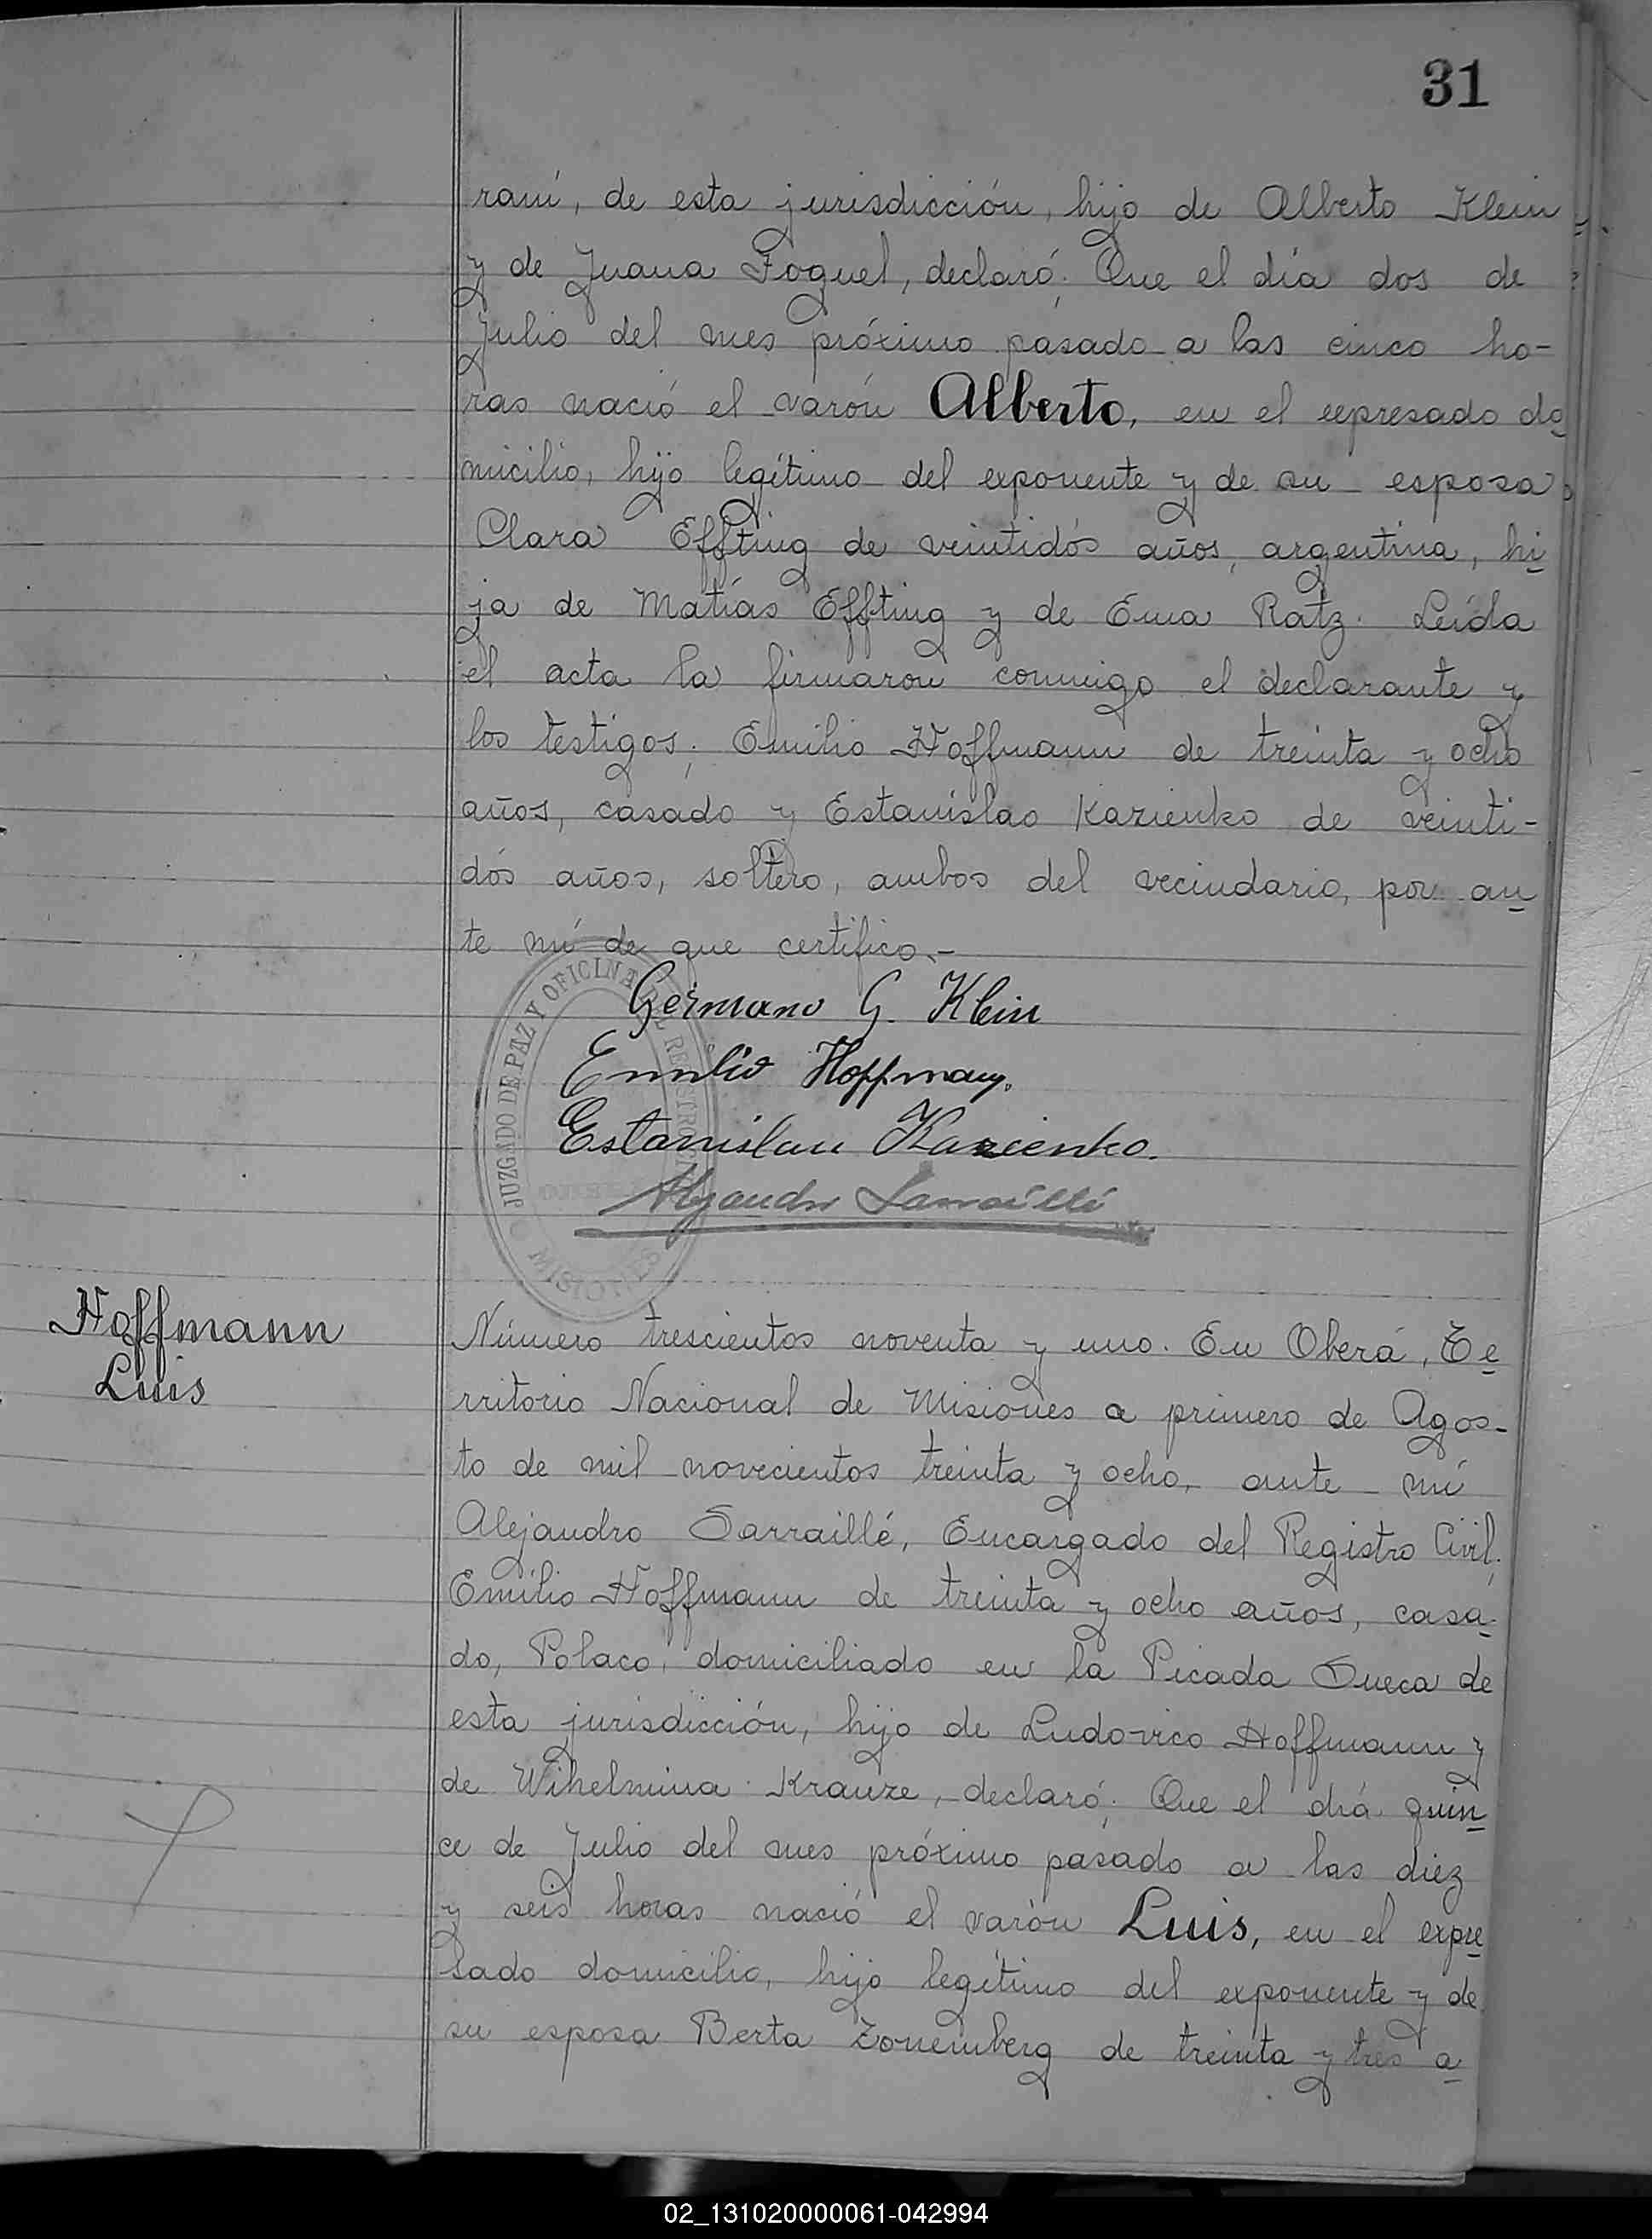 31
raní, de esta jurisdicción, hijo de Alberto Klein
y de Juana Foguel, declaró; Que el día dos de
Julio del mes próximo pasado a las cinco ho-
ras nació el varón Alberto, en el expresado do
micilio, hijo legítimo del exponente y de su esposa
Clara Effting de veintidós años, argentina, hi
ja de Matías Effting y de Ema Ratz. Leída
el acta la firmaron conmigo el declarante y
los testigos; Emilio Hoffmann de treinta y ocho
años, casado y Estanislao Kazienko de veinti-
dós años, soltero, ambos del vecindario, por an
te mí de que certifico.-
JUZGADO DE PAZ Y OFICINA REGISTRO
MISIONES
Germano G. Klein
Emilio Hoffmann.
Estanislau Kazienko.
Alejandro Sarraillé
Hoffmann
Luis
Número trescientos noventa y uno. En Oberá, Te
rritorio Nacional de Misiones a primero de Agos-
to de mil novecientos treinta y ocho, ante mí
Alejandro Sarraillé, Encargado del Registro Civil;
Emilio Hoffmann de treinta y ocho años, casa
do, Polaco, domiciliado en la Picada Sueca de
esta jurisdicción, hijo de Ludovico Hoffmann y
de Wihelmina Krauze, declaró; Que el día quin
ce de Julio del mes próximo pasado a las diez
y seis horas nació el varón Luis, en el expre
sado domicilio, hijo legítimo del exponente y de
su esposa Berta Zonemberg de treinta y tres a
02_131020000061-042994